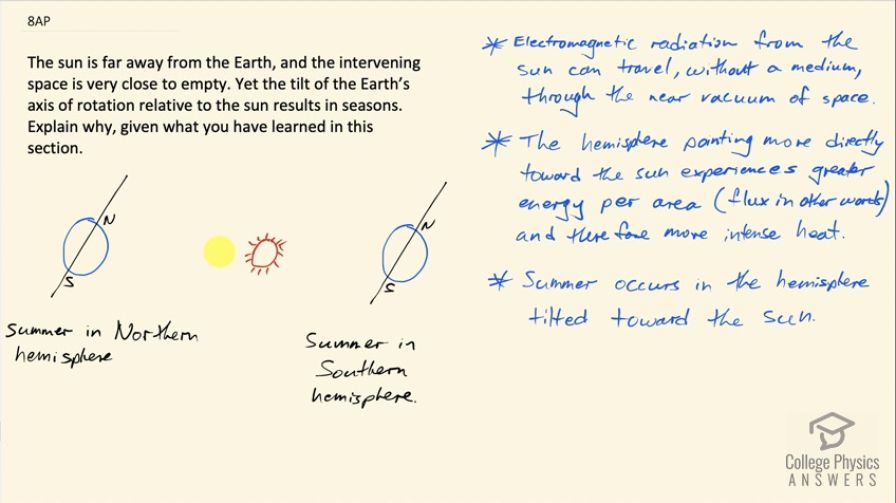 8AP
The sun is far away from the Earth, and the intervening
space is very close to empty. Yet the tilt of the Earth's
axis of rotation relative to the sun results in seasons.
Explain why, given what you have learned in this
section.
N
S
Summer in Northern
hemisphere
N
S
Summer in
Southern
hemisphere.
* Electromagnetic radiation from the
sun can travel, without a medium,
through the near vacuum of space.
* The hemisphere pointing more directly
toward the sun experiences greater
energy per area (flux in other words)
and therefore more intense heat.
* Summer occurs in the hemisphere
tilted toward the sun.
College Physics
ANSWERS